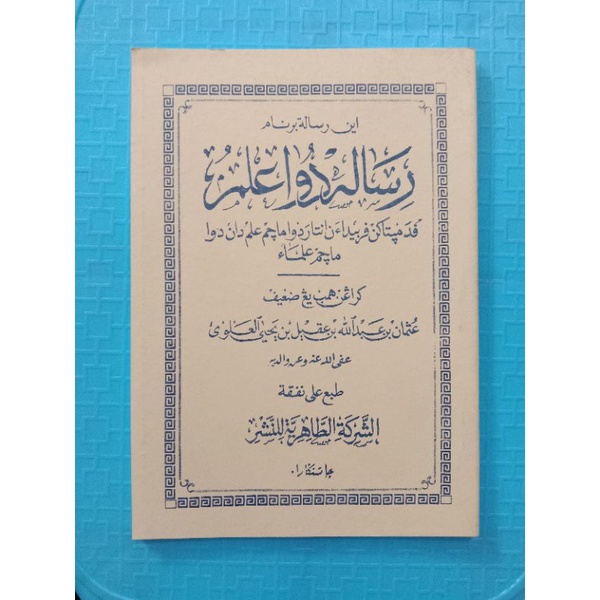 اين رسالة برنام
رساله دوا علمو
ڤد مپتاكن ڤربيداءن انتار دوا ماچم علم دان دوا
ماچم علماء
كراڠن همب يڠ ضعيف
عثمان بن عبد الله بن عقيل بن يحيى العلوى
عفى الله عنه وعن والديه
طبع على نفقة
الشركة الطاهرية للنشر